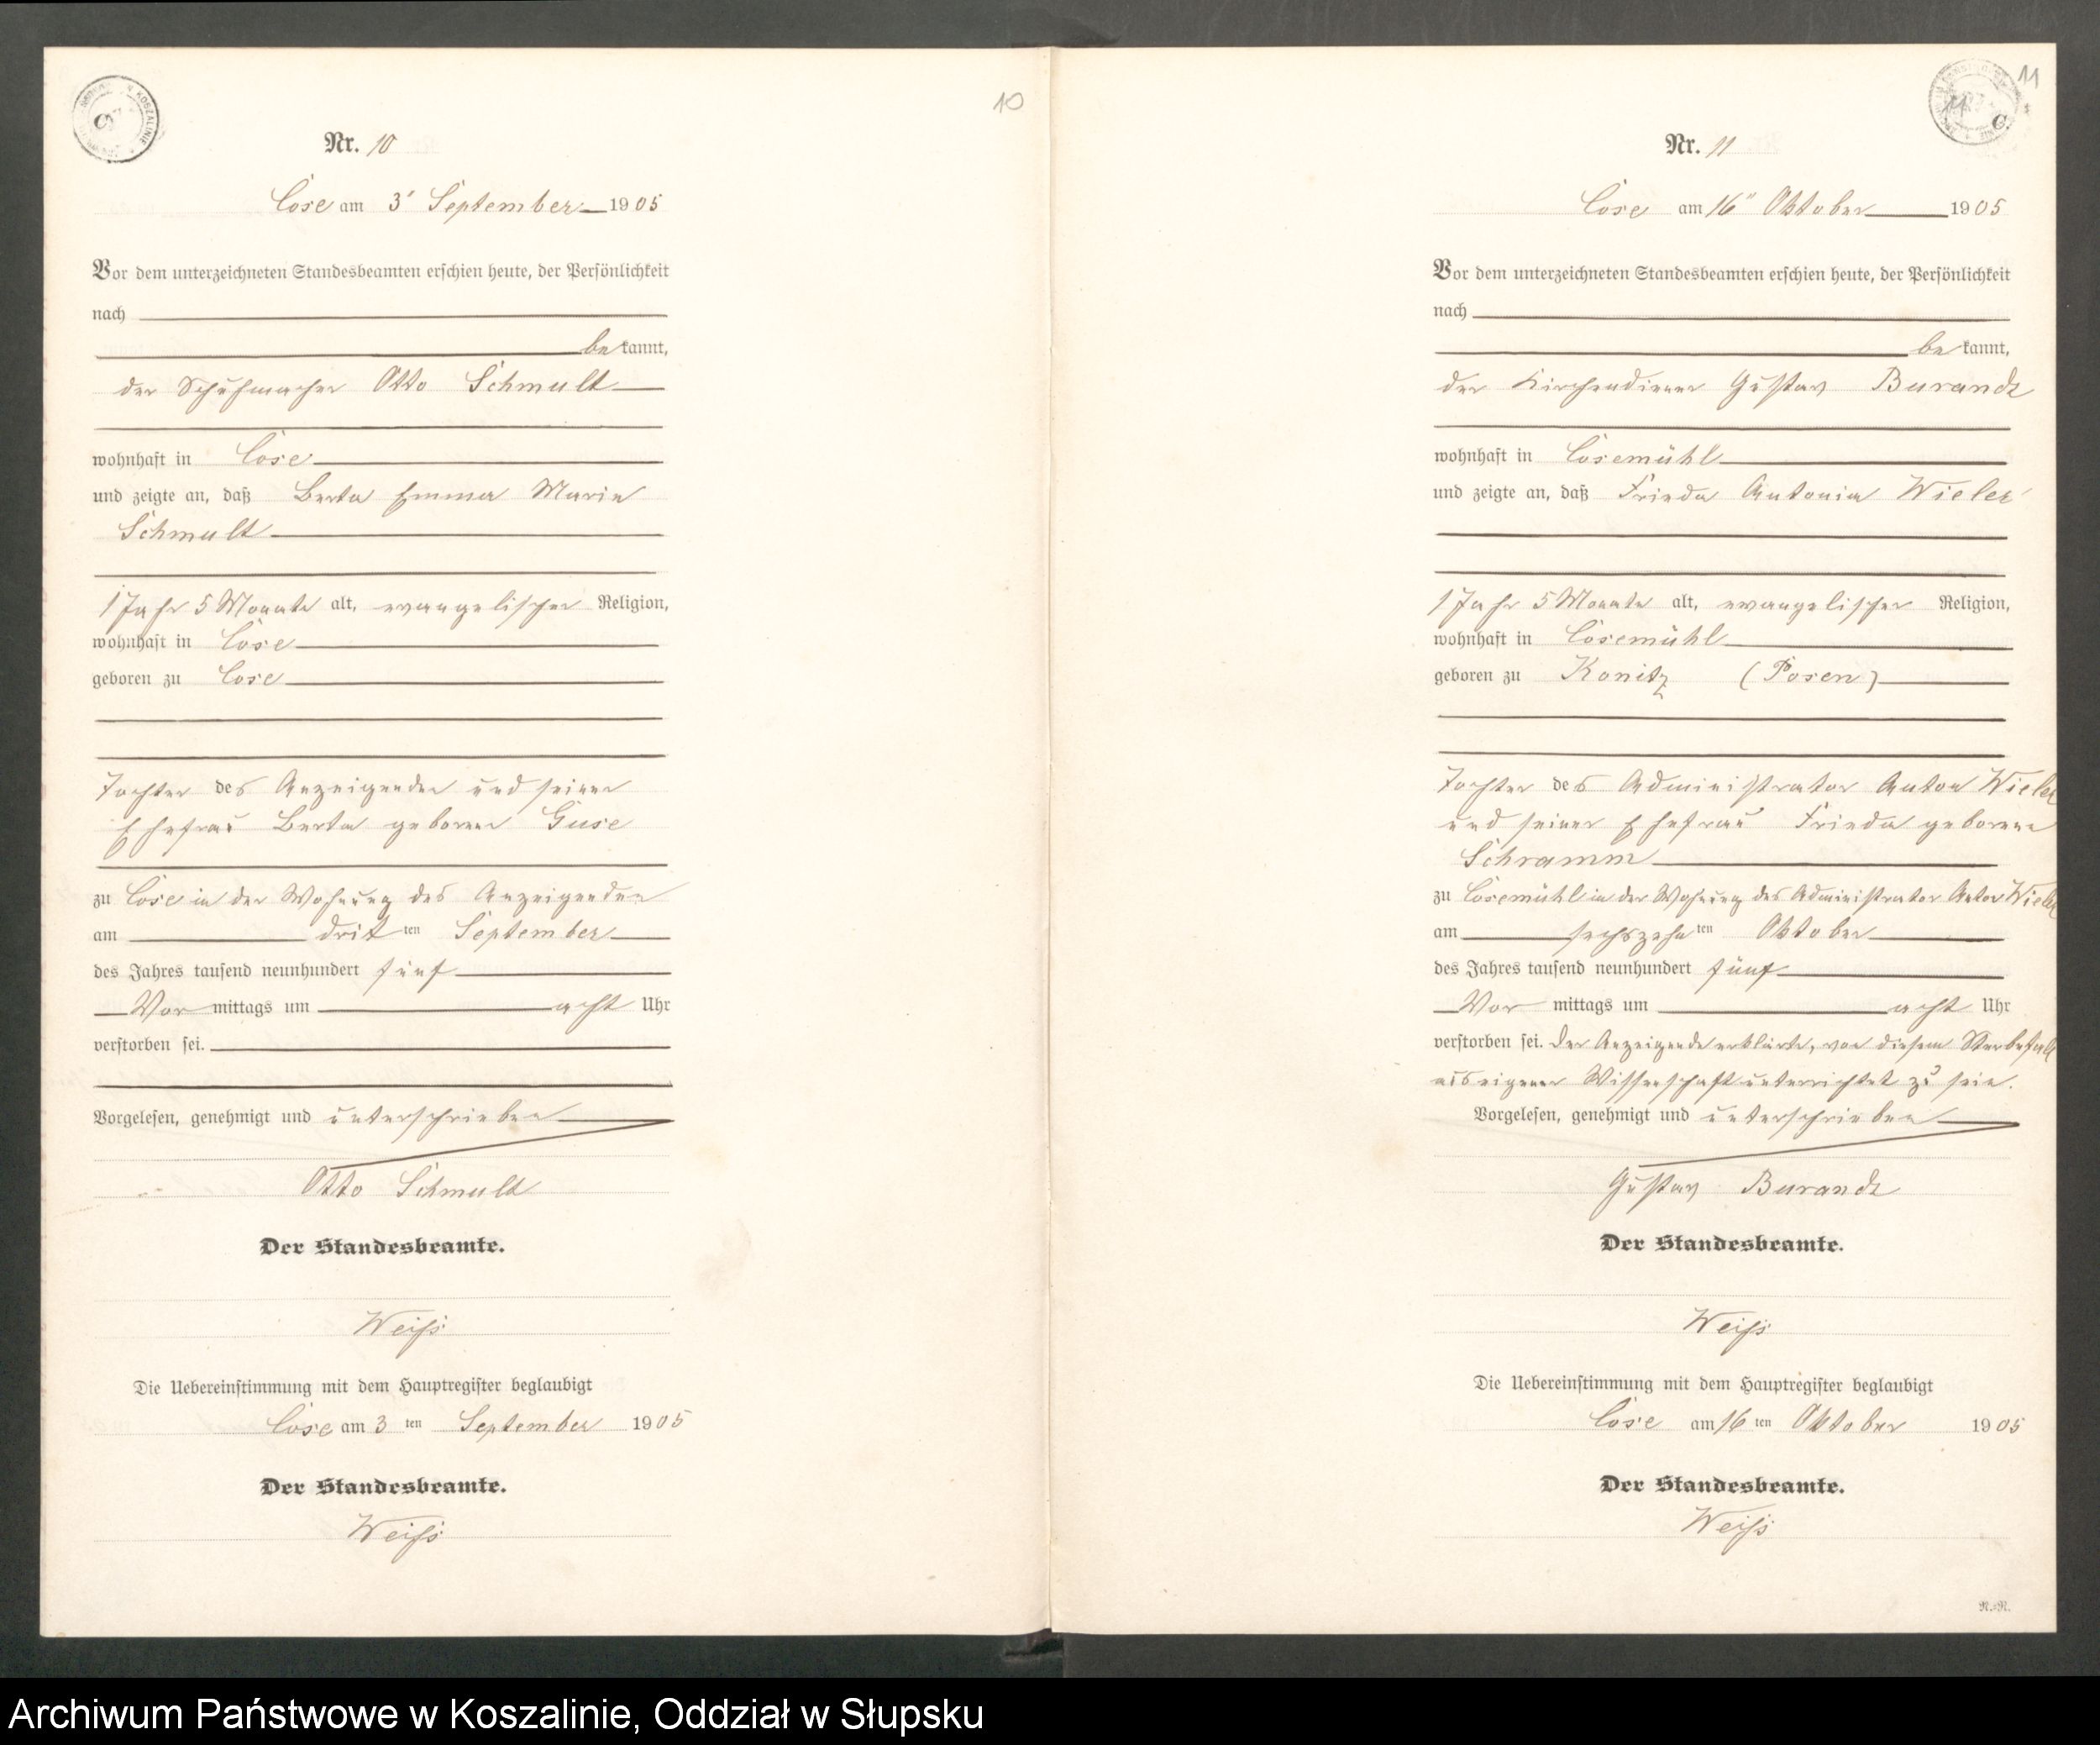 10
Nr. 10
Cose am 3' September 1905
Vor dem unterzeichneten Standesbeamten erschien heute, der Persönlichkeit
nach
be kannt,
der Schuhmacher Otto Schmult
wohnhaft in Cose
und zeigte an, daß Berta Emma Marie
Schmult
1 Jahr 5 Monate alt, evangelischer Religion,
wohnhaft in Cose
geboren zu Cose
Tochter des Anzeigenden und seiner
Ehefrau Berta geborene Guse
zu Cose in der Wohnung des Anzeigenden
am dritten September
des Jahres tausend neunhundert fünf
Vor mittags um acht Uhr
verstorben sei.
Vorgelesen, genehmigt und unterschrieben
Otto Schmult
Der Standesbeamte.
Weiß
Die Uebereinstimmung mit dem Hauptregister beglaubigt
Cose am 3 ten September 1905
Der Standesbeamte.
Weiß
11
Nr. 11
Cose am 16" Oktober 1905
Vor dem unterzeichneten Standesbeamten erschien heute, der Persönlichkeit
nach
be kannt,
der Kirchendiener Gustav Burandt
wohnhaft in Cosemühl
und zeigte an, daß Frieda Antonie Wieler
1 Jahr 5 Monate alt, evangelischer Religion,
wohnhaft in Cosemühl
geboren zu Konitz (Posen)
Tochter des Administrator Anton Wieler
und seiner Ehefrau Frieda geborene
Schramm
zu Cosemühl in der Wohnung des Administrator Anton Wieler
am sechszehnten Oktober
des Jahres tausend neunhundert fünf
Vor mittags um acht Uhr
verstorben sei. Der Anzeigende erklärte, von diesem Sterbefall
aus eigener Wissenschaft unterrichtet zu sein.
Vorgelesen, genehmigt und unterschrieben
Gustav Burandt
Der Standesbeamte.
Weiß
Die Uebereinstimmung mit dem Hauptregister beglaubigt
Cose am 16 ten Oktober 1905
Der Standesbeamte.
Weiß
Archiwum Państwowe w Koszalinie, Oddział w Słupsku